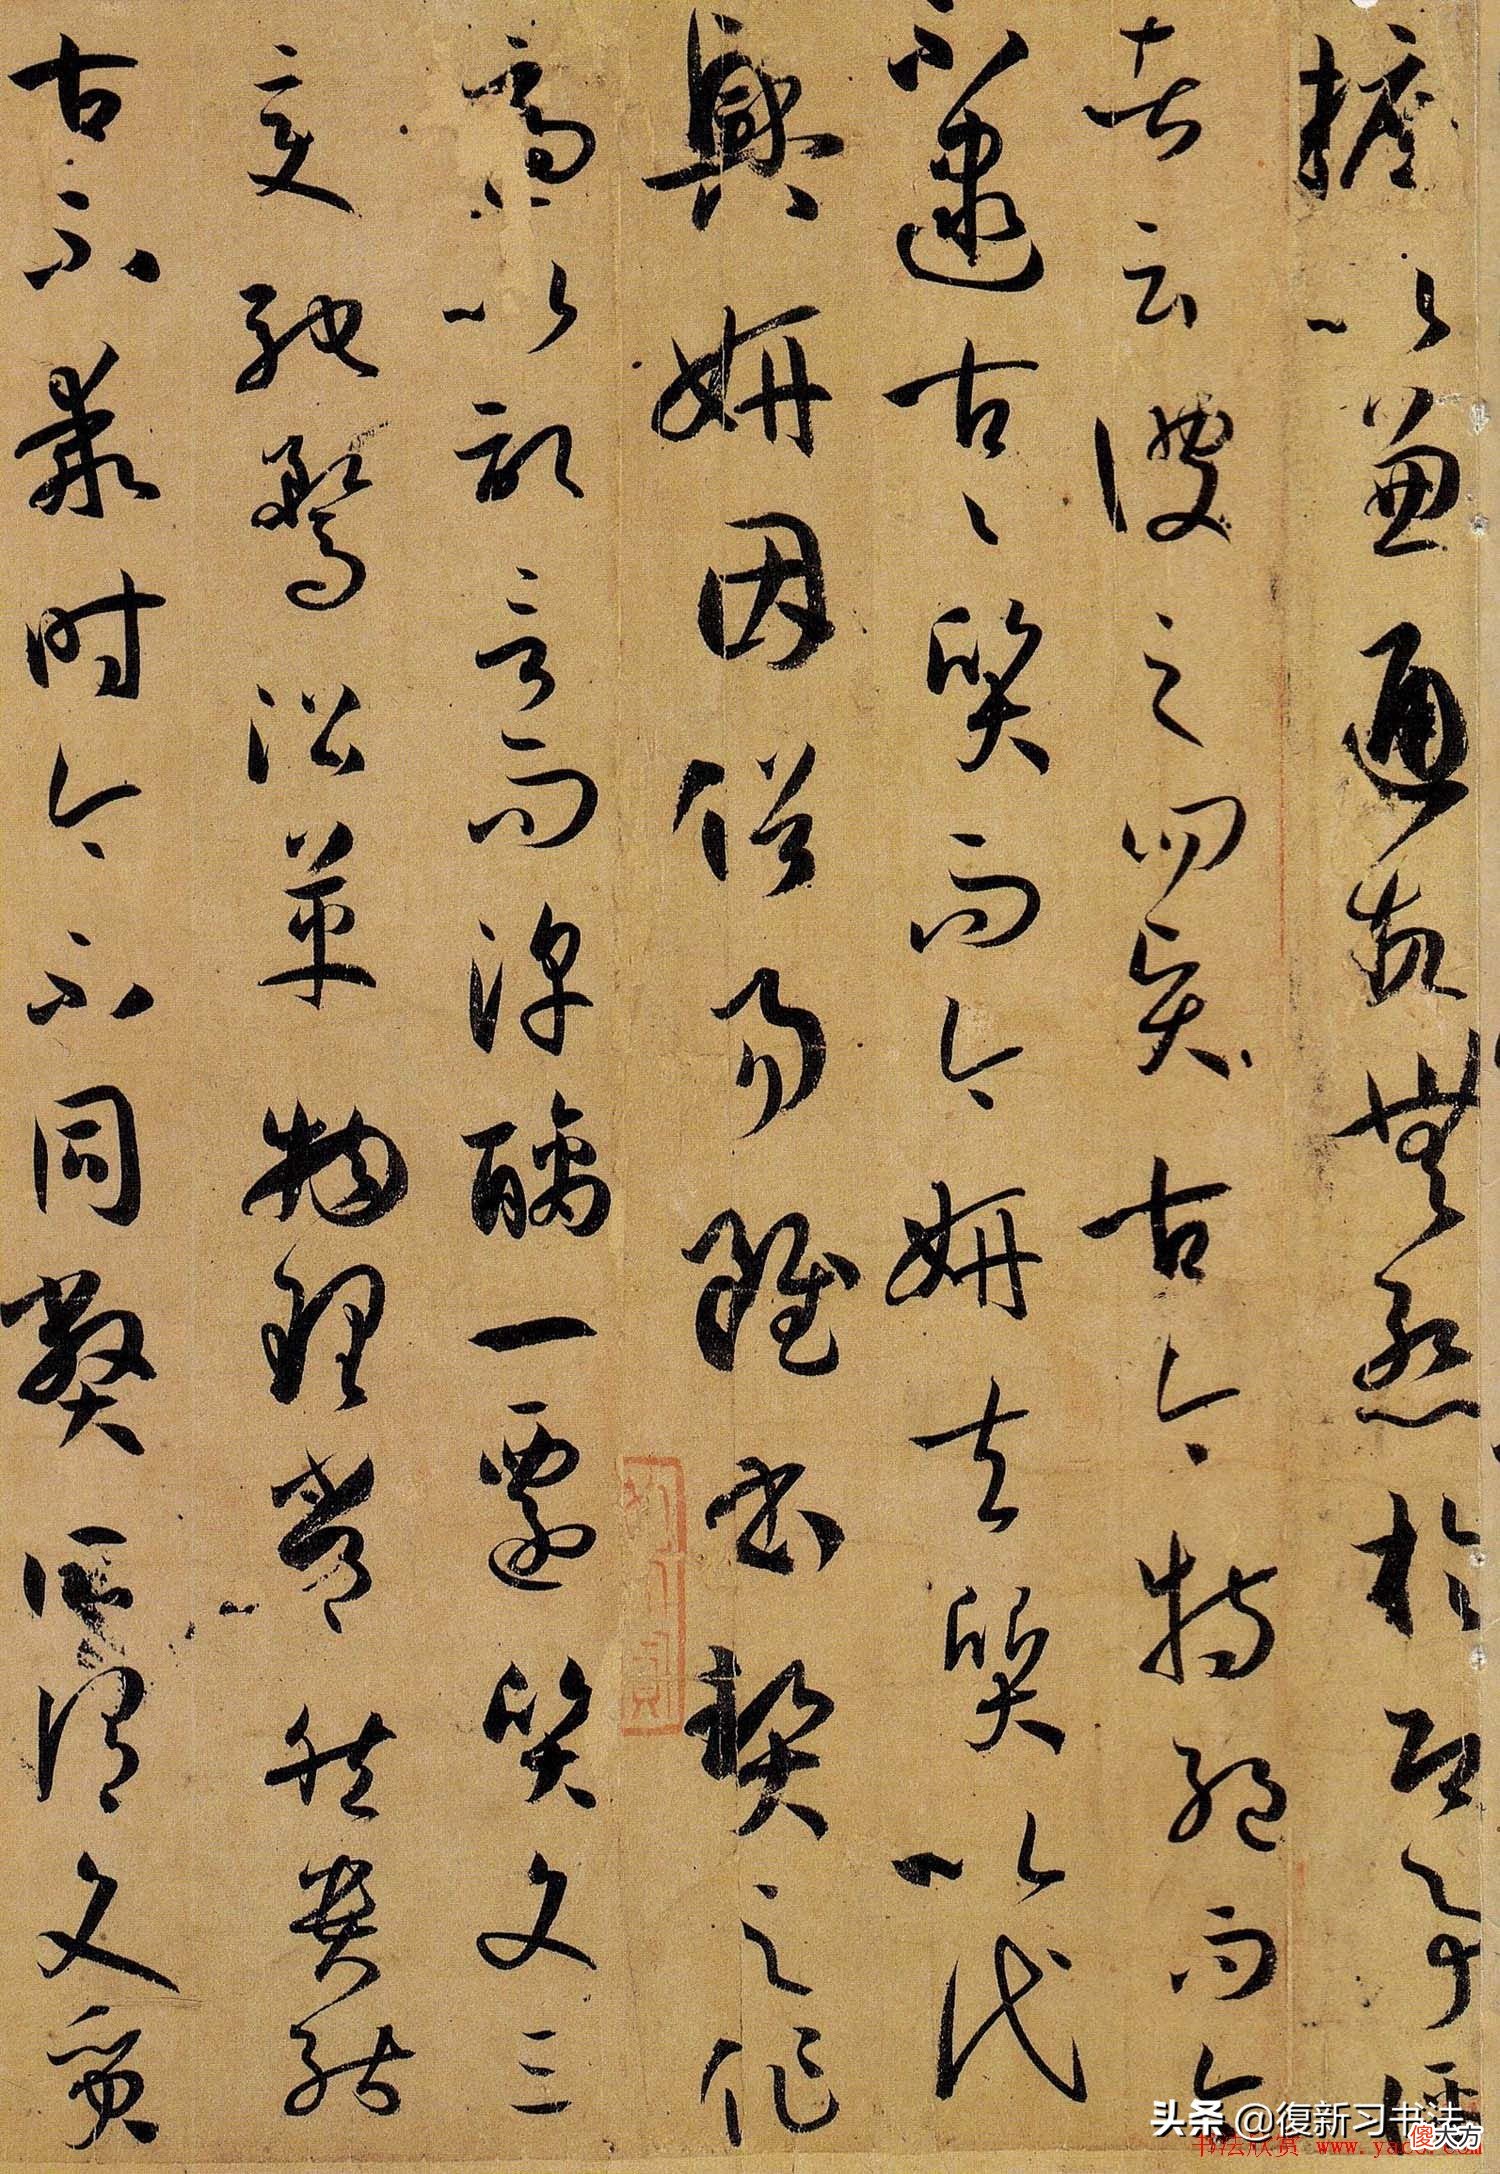 擅以兼通故無慙於即事評
者云彼之四賢古今特絕而今
不逮古々質而今妍夫質以代
興妍因俗易雖書契之作
適以記言而淳醨一遷質文三
變馳騖沿革物理常然貴能
古不乖時今不同弊所謂文質
头条 @復新习书法
傻大方
书法欣赏